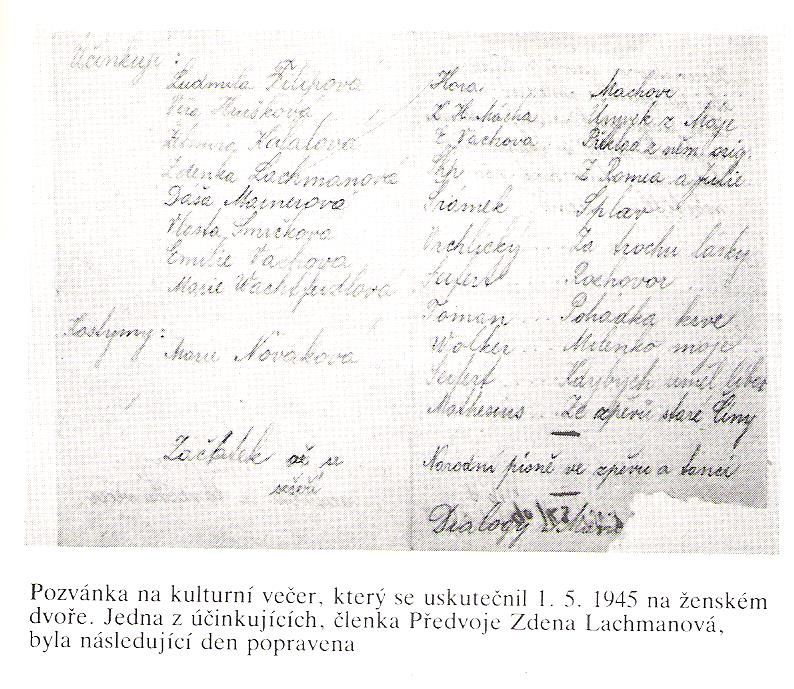 Účinkují:
Ludmila Filipova
Věra Hušková
Kafalova
Zdenka Lachmanová
Dáša Mainerová
Vlasta Smrčkova
Emilie Vachova
Marie Wachtfeidlová
Kostymy:
Marie Nováková
Začátek až se
sešeří
Hora Machovi
K. H. Mácha Úryvek z Máje
E. Vachova Překlad z něm. orig.
Z Romea a Julie
Šrámek Splav
Vrchlický Za trochu lásky
Seifert Rozhovor
Toman Pohádka krve
Wolker Milenko moje
Seifert Kdybych uměl
Mathesius Ze zpěvů staré Číny
Národní písně ve zpěvu a tanci
Dialogy
Pozvánka na kulturní večer, který se uskutečnil 1. 5. 1945 na ženském
dvoře. Jedna z účinkujících, členka Předvoje Zdena Lachmanová,
byla následující den popravena